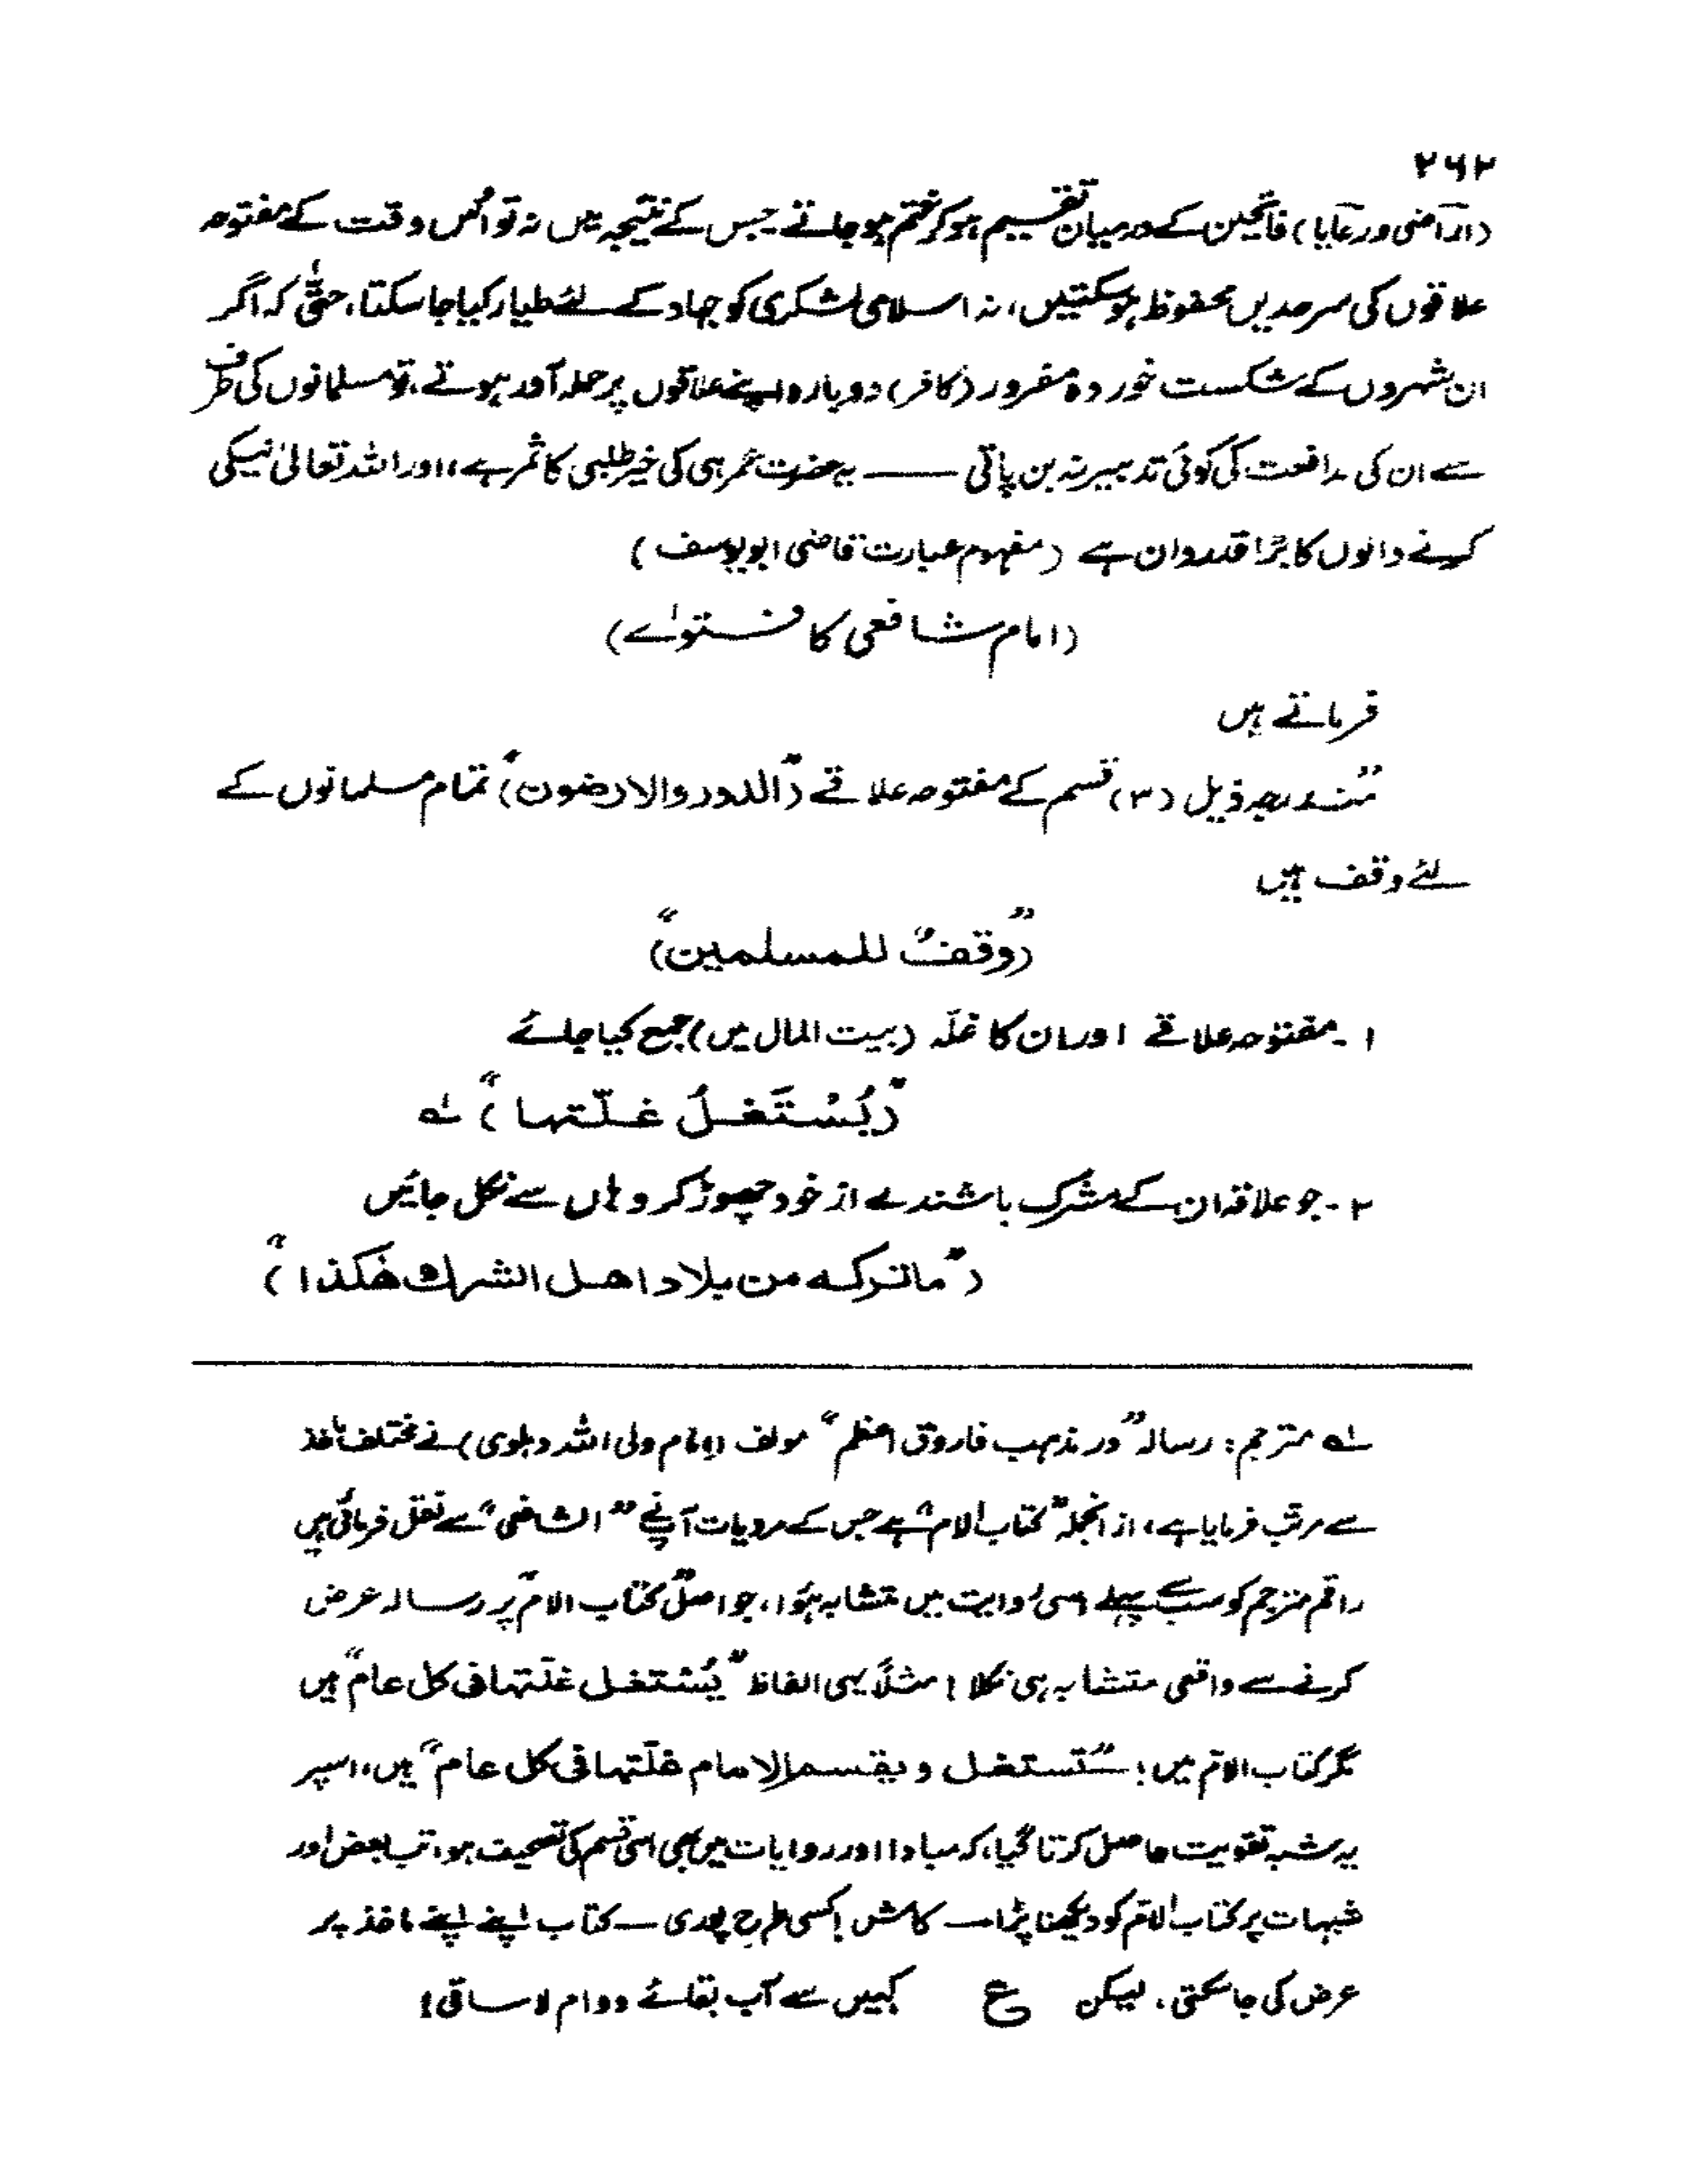 ۲۶۲
(اراضی و رعایا) فاتحین کے درمیان تقسیم ہو کر ختم ہو جاتے۔ جس کے نتیجہ میں نہ تو اُس وقت کے مفتوحہ
علاقوں کی سرحدیں محفوظ ہو سکتیں، نہ اسلامی لشکری کو جہاد کے لئے طیار کیا جا سکتا، حتّٰی کہ اگر
ان شہروں کے شکست خوردہ مفرور (کافر) دوبارہ اپنے علاقوں پر حملہ آور ہوتے، تو مسلمانوں کی طرف
سے ان کی مدافعت کی کوئی تدبیر نہ بن پاتی —— یہ حضرت عمر ہی کی خیر طلبی کا ثمر ہے،، اور اللہ تعالیٰ نیکی
کرنے والوں کا بڑا قدردان ہے (مفہوم عبارت قاضی ابو یوسف)
(امام شافعی کا فتوٰے)
فرماتے ہیں
"مندرجہ ذیل (۳) قسم کے مفتوحہ علاقے ("الدور والارضون") تمام مسلمانوں کے
لئے وقف ہیں
("وقفٌ للمسلمین")
۱۔ مفتوحہ علاقے اور ان کا غلّہ (بیت المال میں) جمع کیا جائے
("یُسْتَغلُ غلّتہا") لہ
۲۔ جو علاقہ ان کے مشرک باشندے از خود چھوڑ کر وہاں سے نکل جائیں
("ماترکہ من بلاد اھل الشرك ھٰکذا")
لہ مترجم: رسالہ "در مذہب فاروق اعظم" مولف (امام ولی اللہ دہلوی) نے مختلف ماخذ
سے مرتب فرمایا ہے، از انجملہ "کتاب الام" ہے جس کے مرویات آپنے "الشافعی" سے نقل فرمائی ہیں
راقم مترجم کو سب سے پہلے اسی روایت میں تشابہ ہُوا، جو اصل "کتاب الام" پر رسالہ عرض
کرنے سے واقعی متشابہ ہی نکلا! مثلاً یہی الفاظ "یُسْتغل غلّتہا فی کل عام" ہیں
مگر کتاب الام میں؛ "تستغل و یقسم الامام غلّتہا فی کل عام" ہیں، اسپر
یہ شبہ تقویت حاصل کرتا گیا، کہ مبادا اور روایات میں بھی اسی قسم کی تصحیف ہو، تب بعض اور
شبہات پر کتاب الام کو دیکھنا پڑا — کاش! کسی طرح پوری — کتاب اپنے اپنے ماخذ پر
عرض کی جا سکتی، لیکن ع کہیں سے آب بقائے دوام لا ساقی!